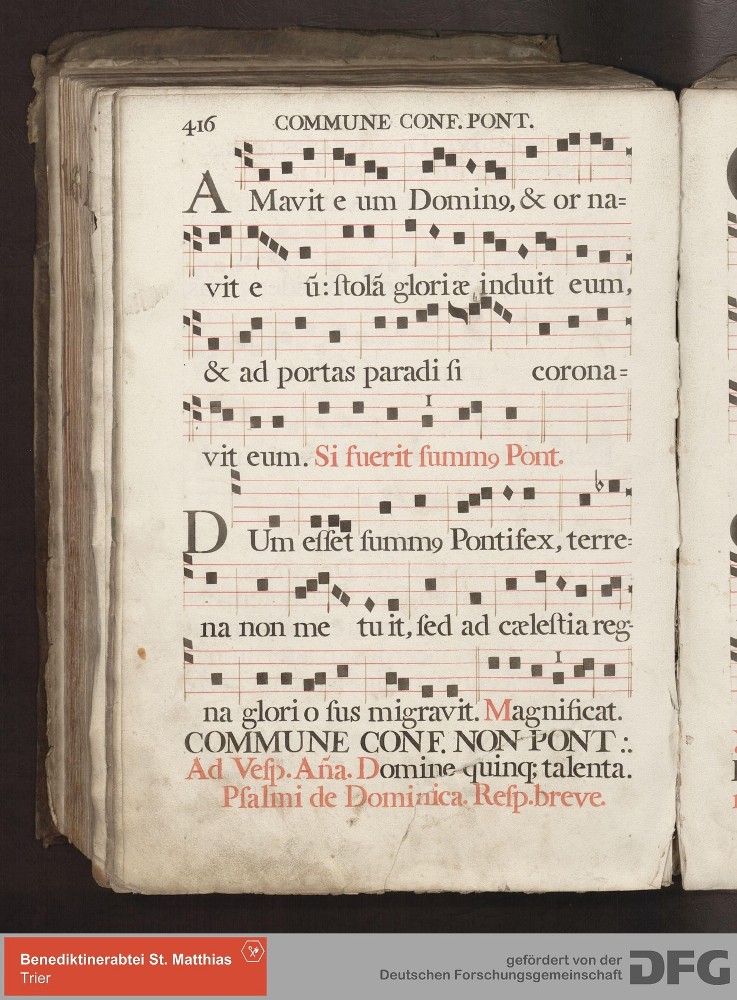 416 COMMUNE CONF. PONT.
AMavit e um Dominꝯ, & or na=
vit e ũ: ſtolã gloriæ induit eum,
& ad portas paradi ſi corona=
1
vit eum. Si fuerit ſummꝯ Pont.
DUm eſſet ſummꝯ Pontifex, terre=
na non me tu it, ſed ad cæleſtia reg-
1
na glori o ſus migravit. Magnificat.
COMMUNE CONF. NON PONT :.
Ad Veſp. Aña. Domine quinq; talenta.
Pſalmi de Dominica. Reſp. breve.
Benediktinerabtei St. Matthias
Trier
gefördert von der
Deutschen Forschungsgemeinschaft
DFG